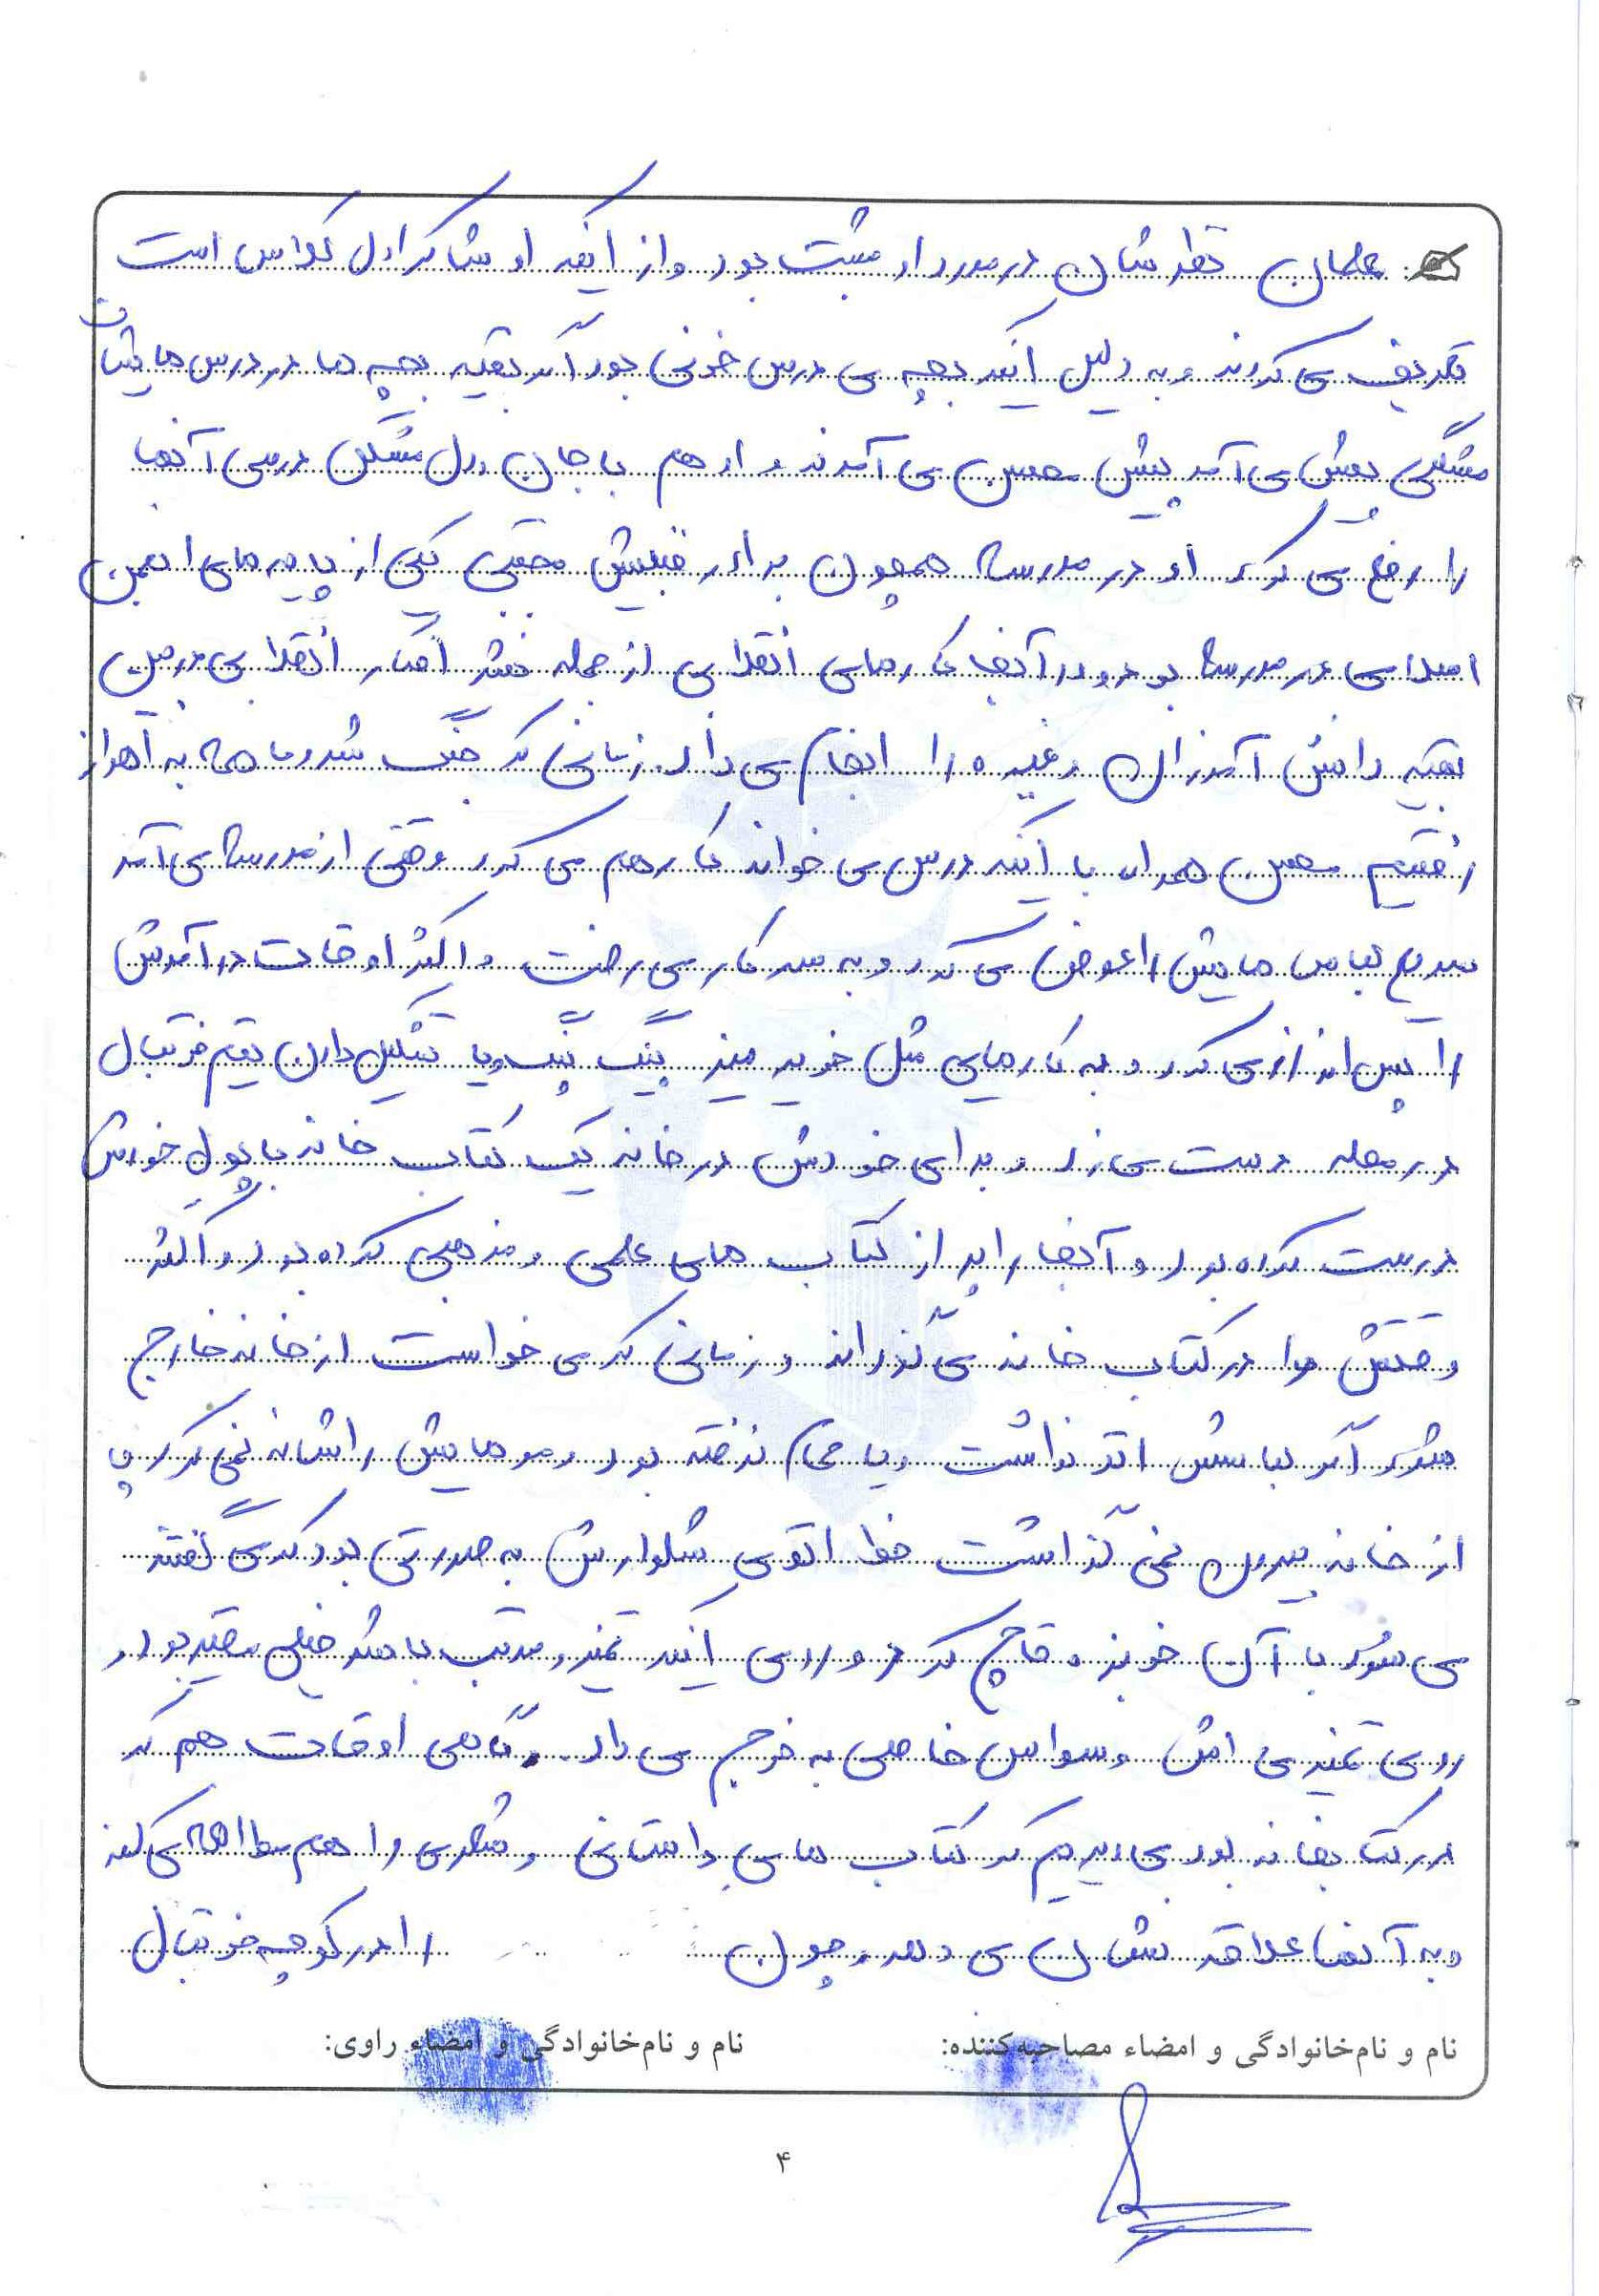 معلمان نظرشان در مورد او مثبت بود و از اینکه او شاگرد اول کلاس است
تعریف می کردند و به دلیل اینکه بچه ی درس خونی بود اگر بقیه بچه ها در درس هایشان
مشکلی پیش می آمد پیش محسن می آمدند و او هم با جان و دل مشکل درسی آنها
را رفع می کرد او در مدرسه همچون برادر قبلیش مجتبی یکی از پایه های انجمن
اسلامی در مدرسه بود و در آنجا کارهای انقلابی از جمله نشر افکار انقلابی در بین
بقیه دانش آموزان و غیره را انجام می داد. زمانی که جنگ شد و ما همه به اهواز
رفتیم محسن همراه با اینکه درس می خواند کار هم می کرد وقتی از مدرسه می آمد
سریع لباس هایش را عوض می کرد و به سر کار می رفت و اکثر اوقات درآمدش
را پس انداز می کرد و به کارهایی مثل خرید میز پینگ پنگ و یا تشکیل دادن تیم فوتبال
در محله دست می زد و برای خودش در خانه یک کتاب خانه با پول خودش
درست کرده بود و آنجا را پر از کتاب های علمی و مذهبی کرده بود و اکثر
وقتش را در کتاب خانه می گذراند و زمانی که می خواست از خانه خارج
شود اگر لباسش اتو نداشت و یا حمام نرفته بود و موهایش را شانه نمی کرد پا
از خانه بیرون نمی گذاشت خط اتوی شلوارش به صورتی بود که می گفتند
می شود با آن خربزه قاچ کرد و روی اینکه تمیز و مرتب باشد خیلی مقید بود و
روی تمیزی اش وسواس خاصی به خرج می داد. گاهی اوقات هم که
در کتابخانه بود می دیدیم که کتاب های داستانی و شعری را هم مطالعه می کند
و به آنها علاقه نشان می دهد و چون را در کوچه فوتبال
نام و نام‌خانوادگی و امضاء مصاحبه‌کننده: نام و نام‌خانوادگی و امضاء راوی:
۴